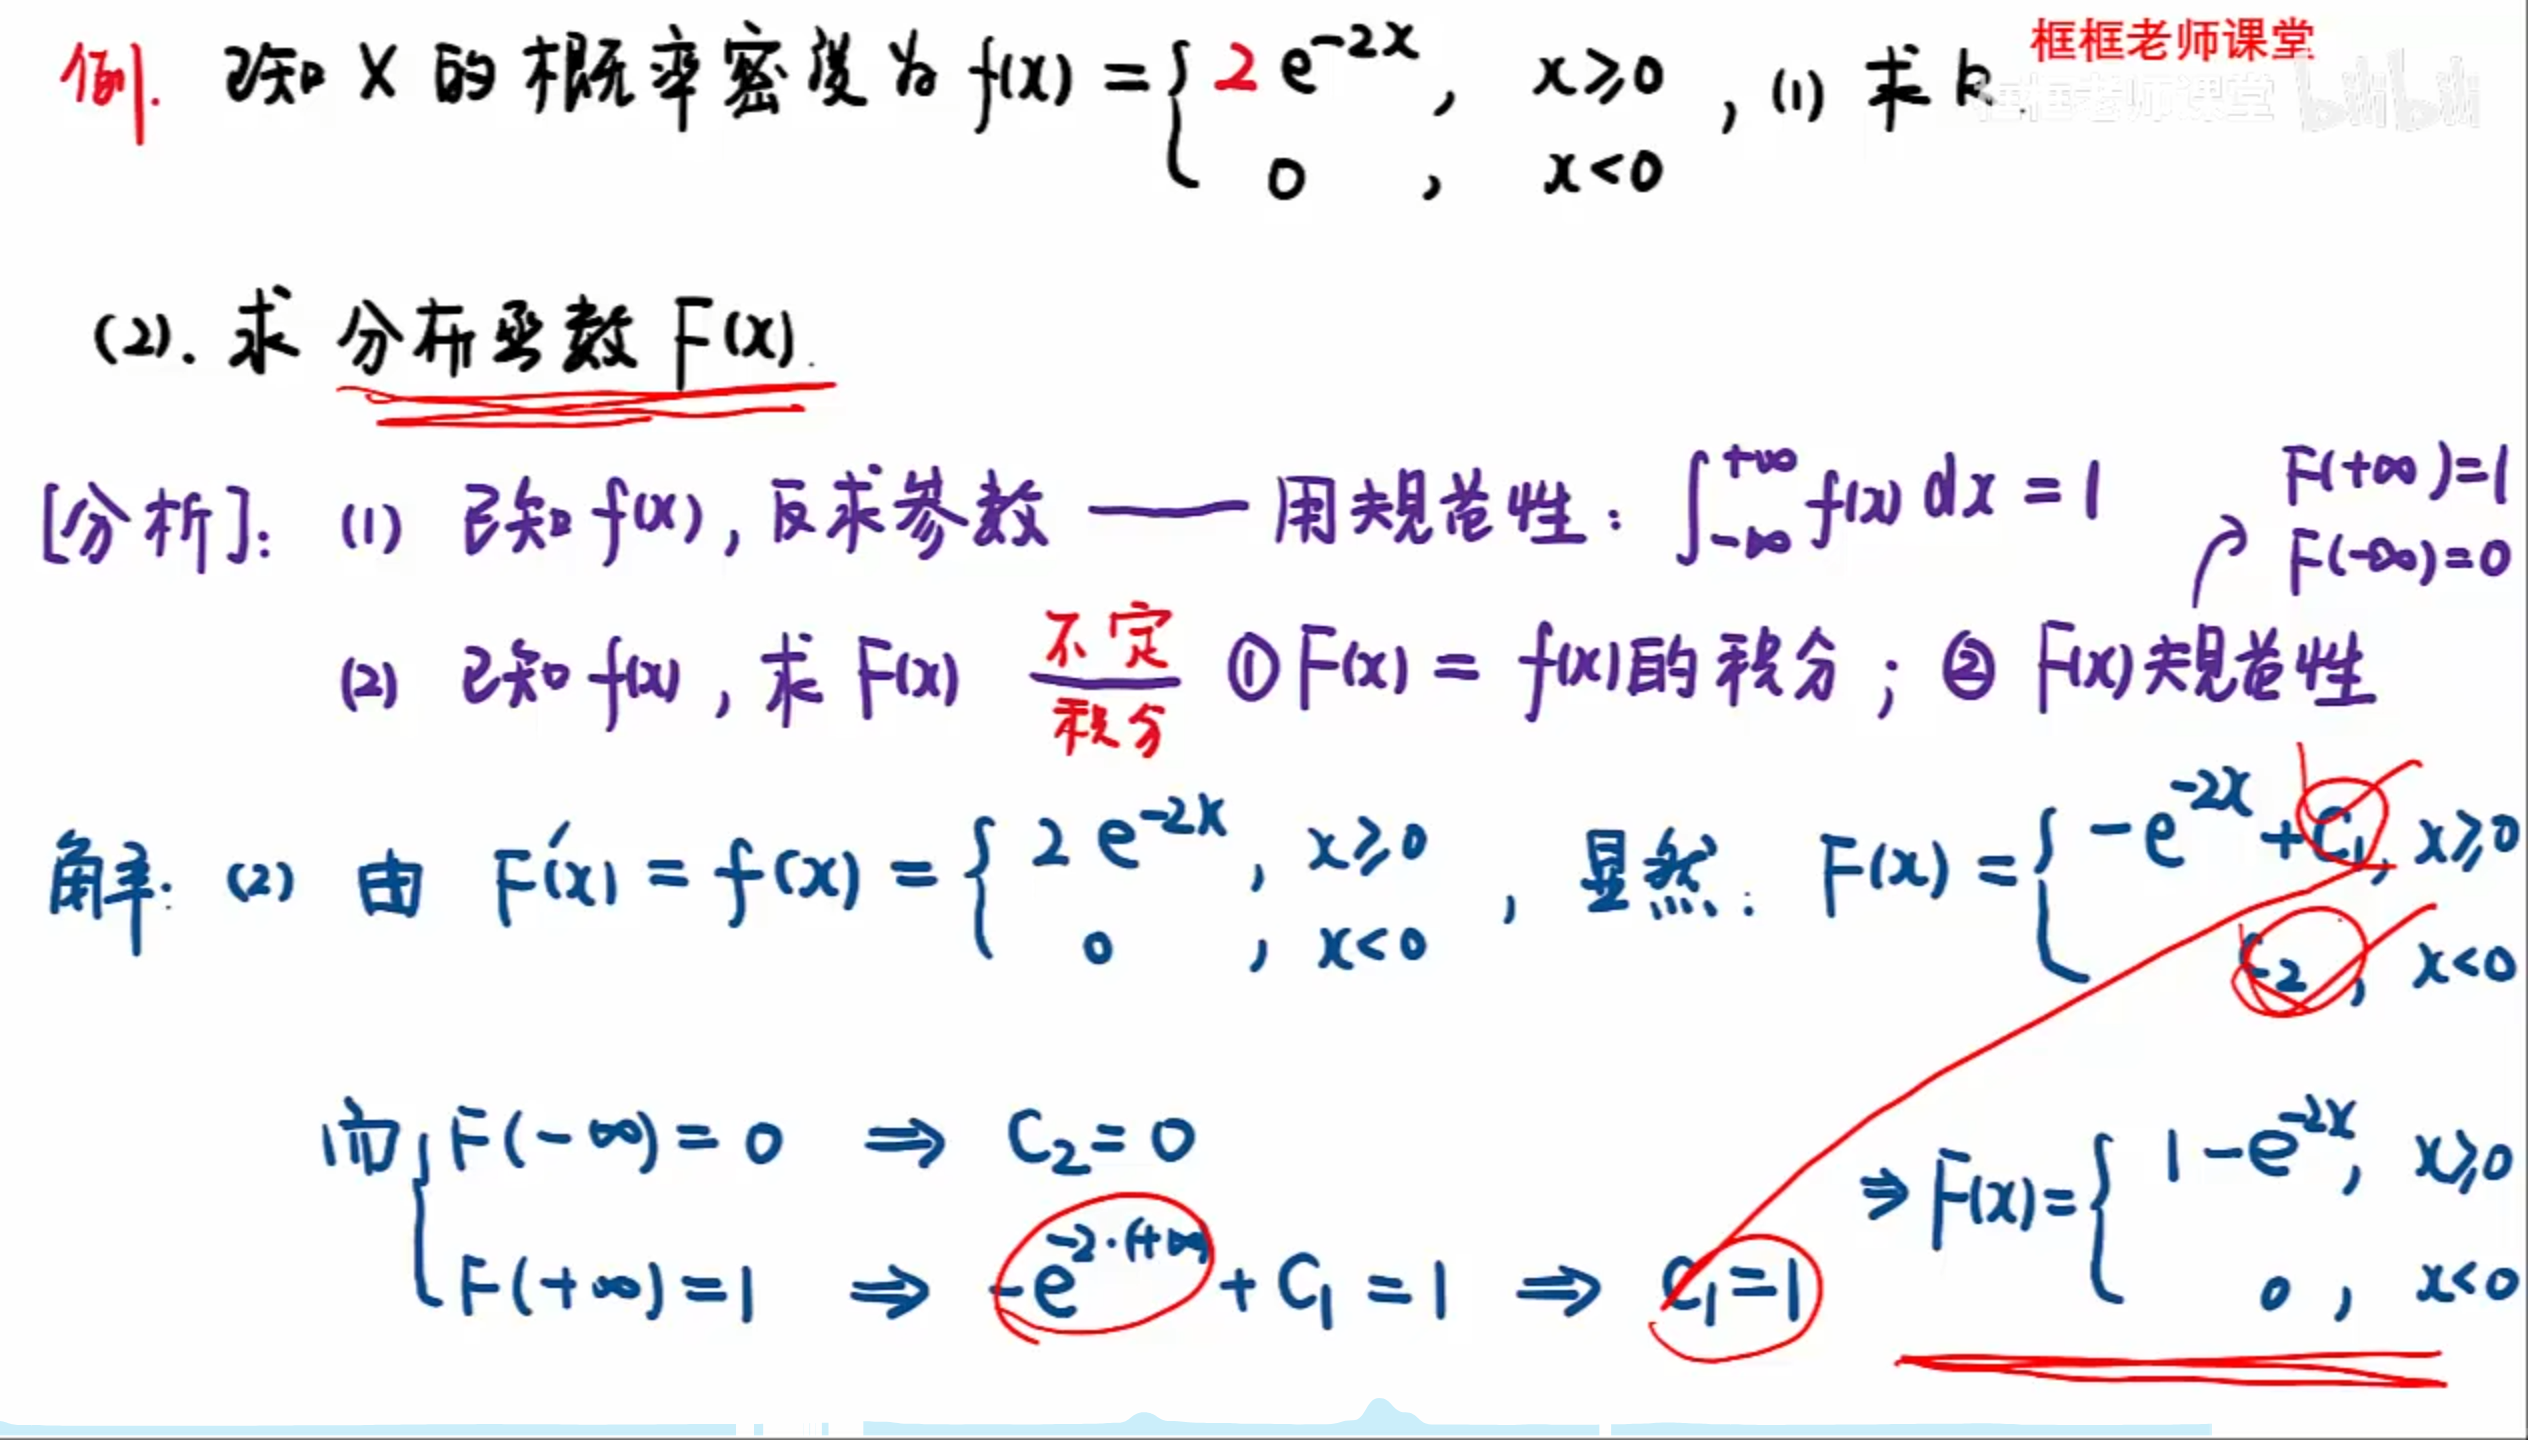 框框老师课堂
例. 已知 X 的概率密度为 f(x) = { 2 e^{-2x}, x≥0 , (1) 求 k.
0 , x<0
框框老师课堂 bilibili
(2). 求 分布函数 F(x).
[分析]: (1) 已知 f(x), 反求参数 —— 用规范性: ∫_{-∞}^{+∞} f(x) dx = 1
F(+∞)=1
F(-∞)=0
(2) 已知 f(x), 求 F(x) 不定积分 ① F(x) = f(x)的积分; ② F(x)规范性
解: (2) 由 F'(x) = f(x) = { 2 e^{-2x}, x≥0 , 显然: F(x) = { -e^{-2x} + C₁, x≥0
0 , x<0 C₂, x<0
而 { F(-∞) = 0 ⇒ C₂ = 0
F(+∞) = 1 ⇒ -e^{-2·(+∞)} + C₁ = 1 ⇒ C₁ = 1
⇒ F(x) = { 1 - e^{-2x}, x≥0
0 , x<0